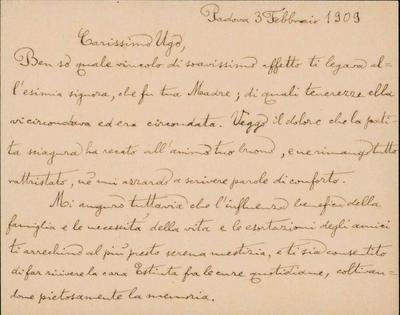 Padova 3 Febbraio 1909
Carissimo Ugo,
Ben so quale vincolo di soavissimo affetto ti legava al-
l'esimia signora, che fu tua Madre; di quali tenerezze ella
vi circondava ed era circondata. Veggo il dolore che la pati-
ta sciagura ha recato all'animo tuo buono, e ne rimango tutto
rattristato, nè mi azzardo a scrivere parole di conforto.
Mi auguro tuttavia che l'influenza benefica della
famiglia e le necessità della vita e le esortazioni degli amici
ti arrechino al più presto serena mestizia, e ti sia consentito
di far rivivere la cara Estinta fra le cure quotidiane, coltivan-
done pietosamente la memoria.